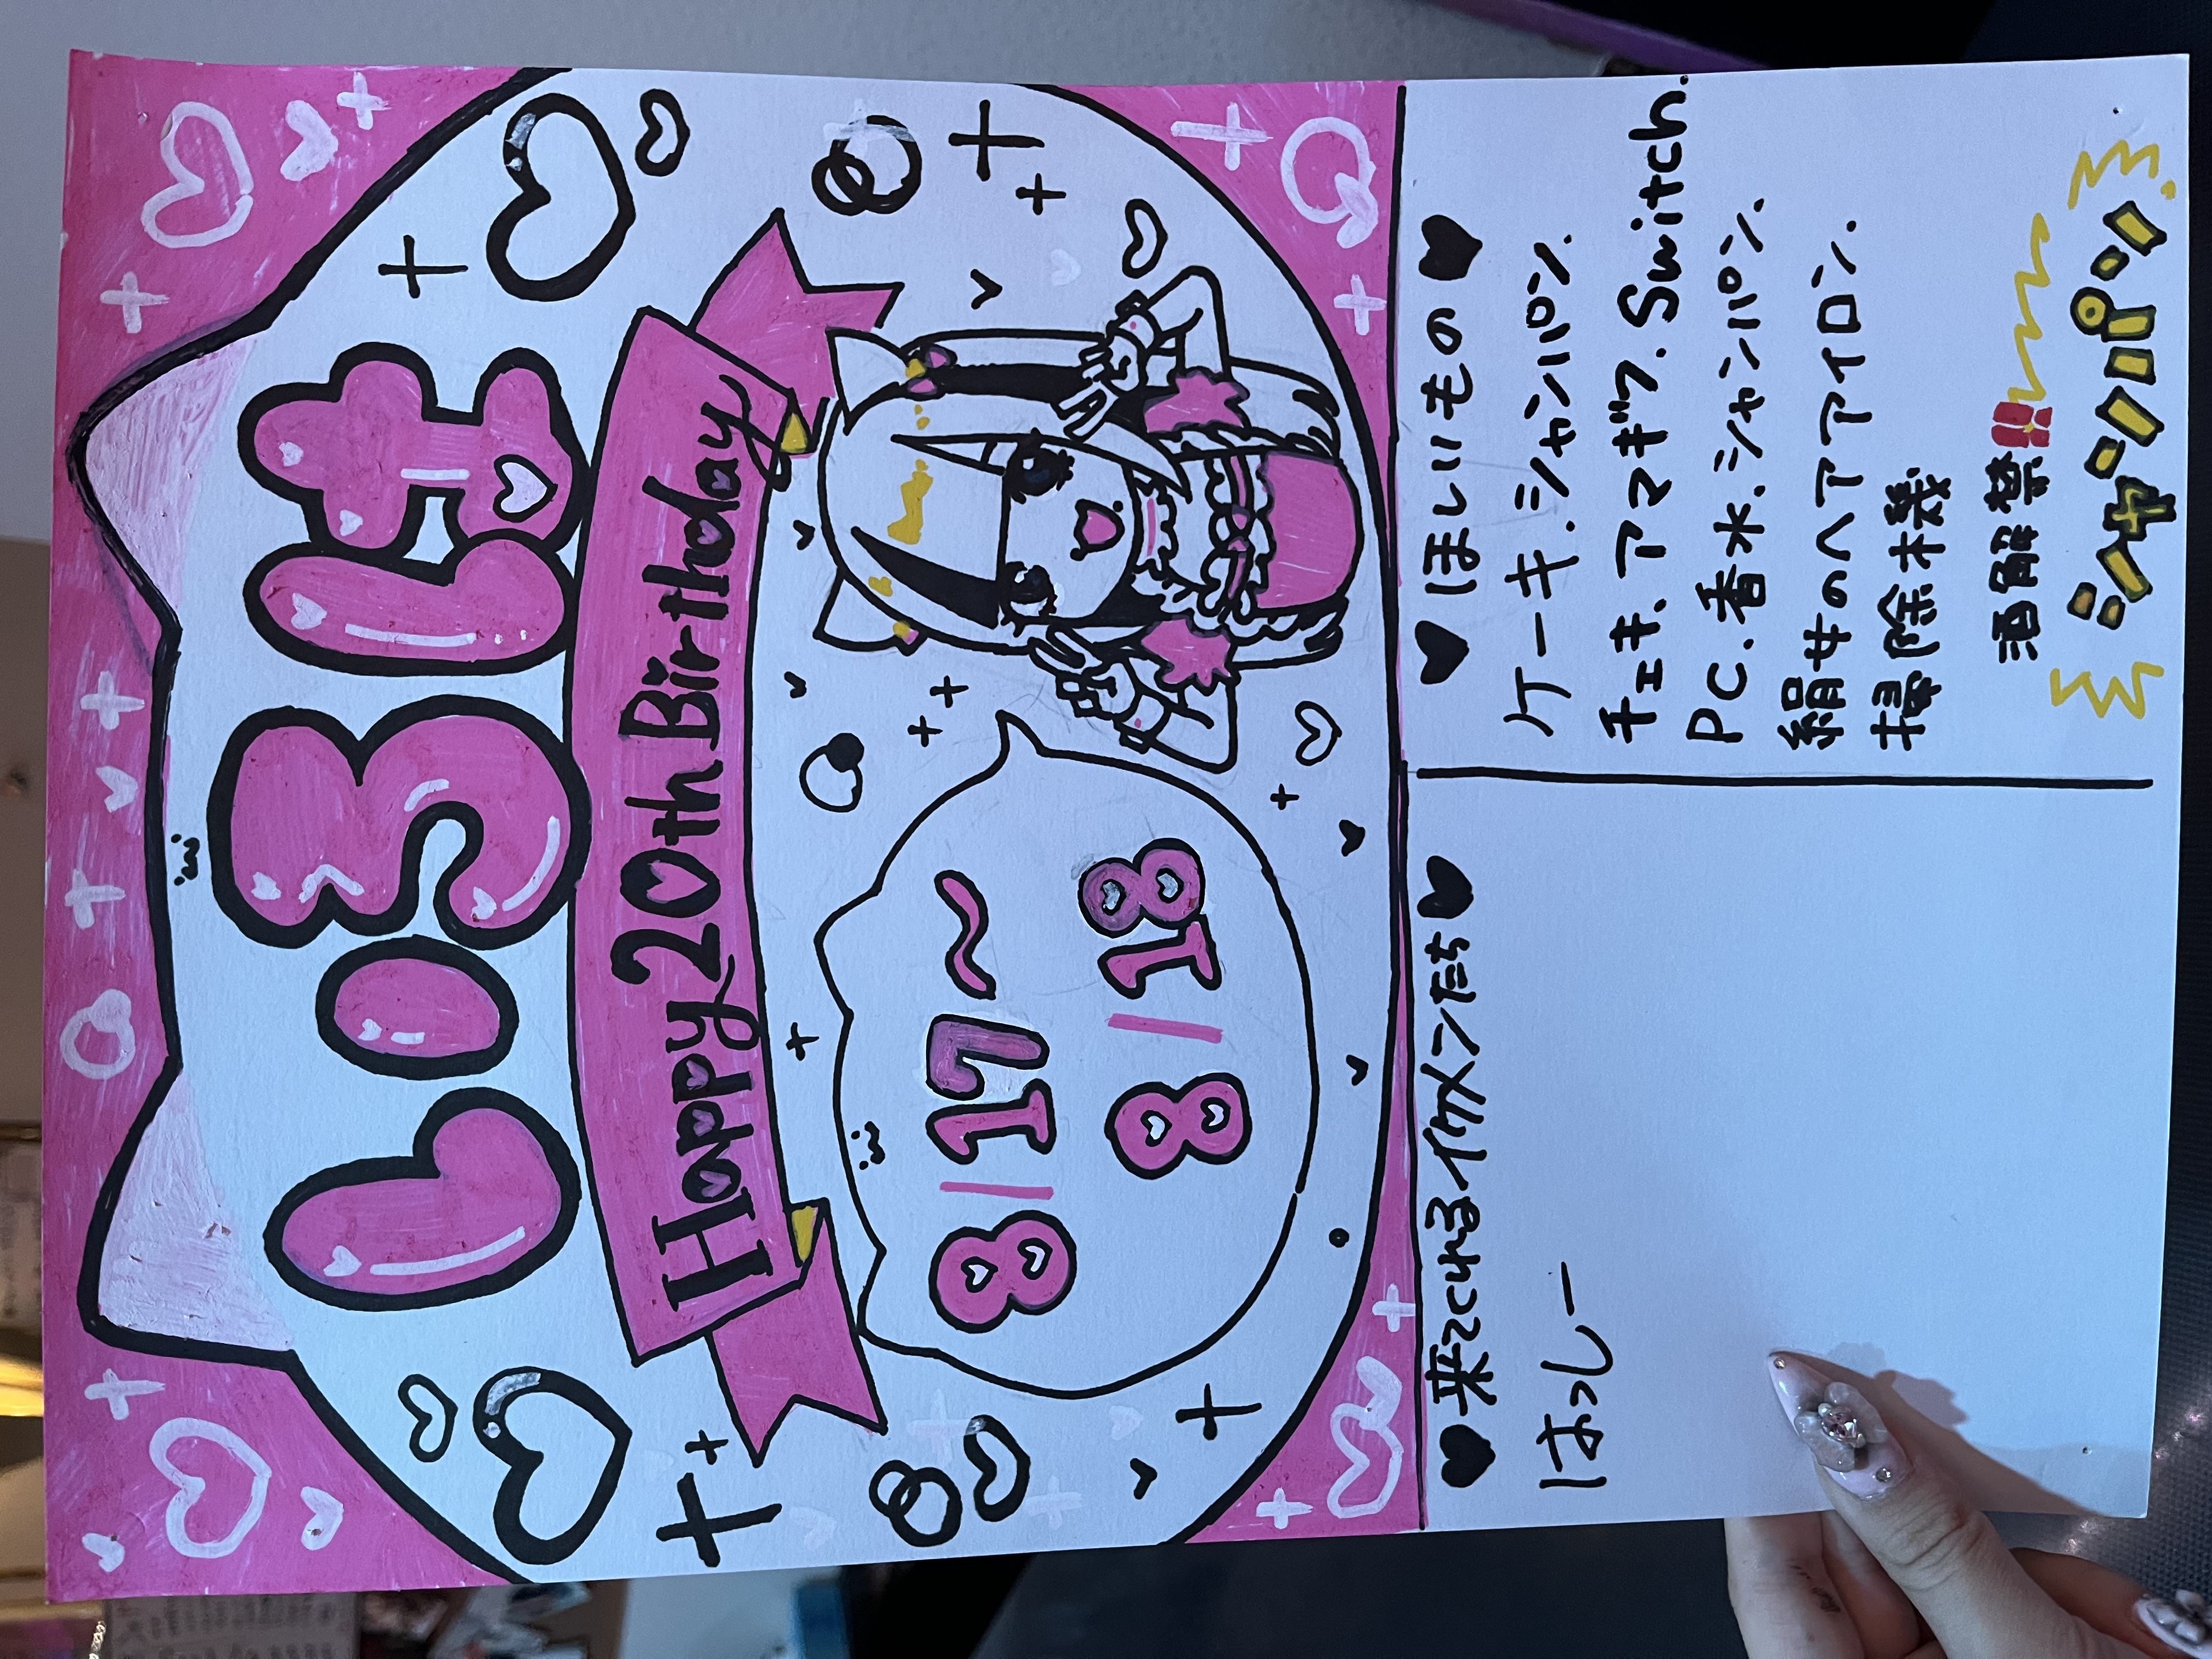 いろは
Happy 20th Birthday
8/17〜
8/18
♥来てくれるイケメンたち♥
はっしー
♥ほしいもの♥
ケーキ.シャンパン.
チェキ.アマギフ.Switch.
PC.香水.シャンパン.
絹女のヘアアイロン.
掃除機
酒解禁!!
シャンパン